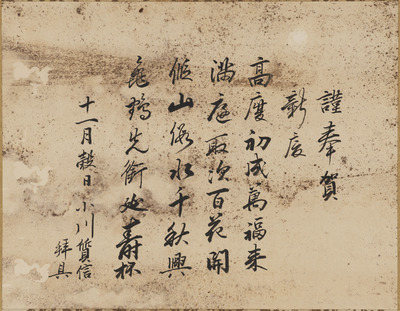 謹奉賀
新慶
高慶初成萬福来
満庭取次百花開
俯山傍水千秋興
龜鶴先銜延壽杯
十一月穀日小川質信
拝具